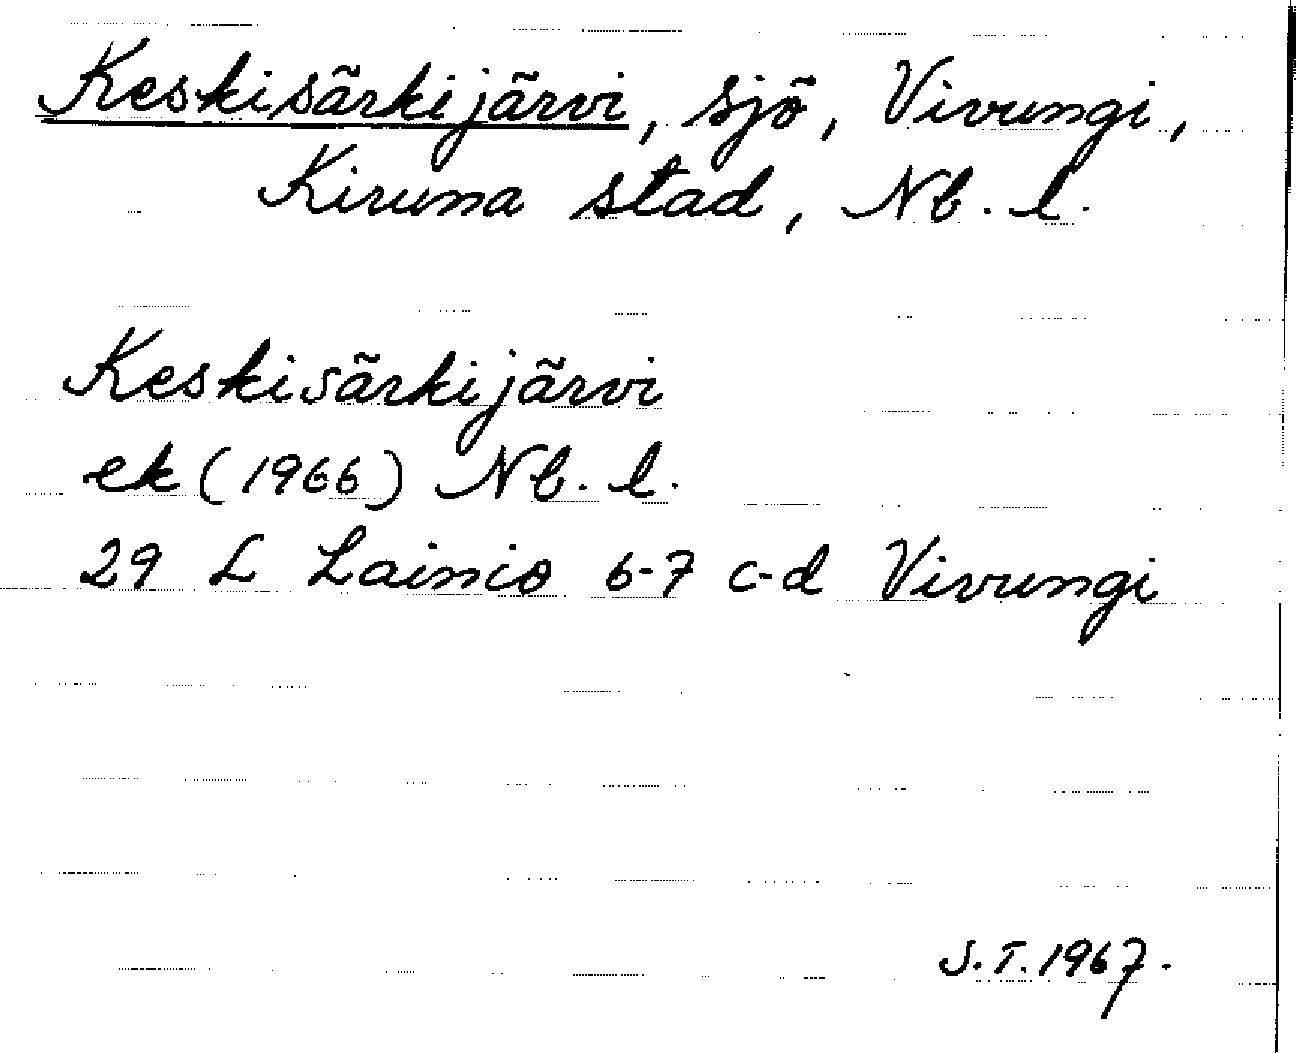 Keskisärkijärvi, sjö, Vivungi,
Kiruna stad, Nb. l.
Keskisärkijärvi
ek (1966) Nb. l.
29 L Lainio 6-7 c-d Vivungi
S.T. 1967.